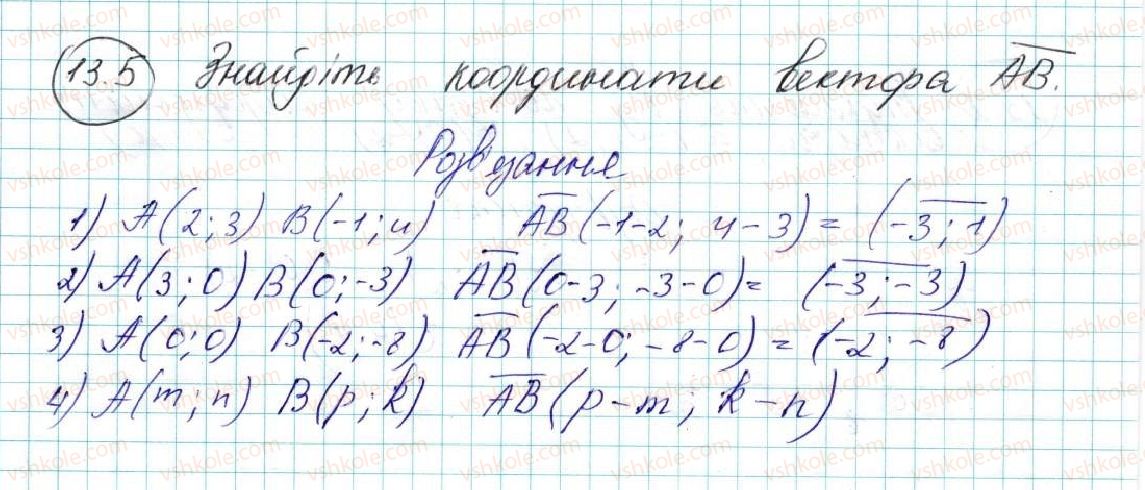 13.5 Знайдіть координати вектора AB.
Розв'язання
1) A(2;3) B(-1;4) AB(-1-2; 4-3)= (-3;1)
2) A(3;0) B(0;-3) AB(0-3; -3-0)= (-3;-3)
3) A(0;0) B(-2;-8) AB(-2-0; -8-0)= (-2;-8)
4) A(m;n) B(p;k) AB(p-m; k-n)